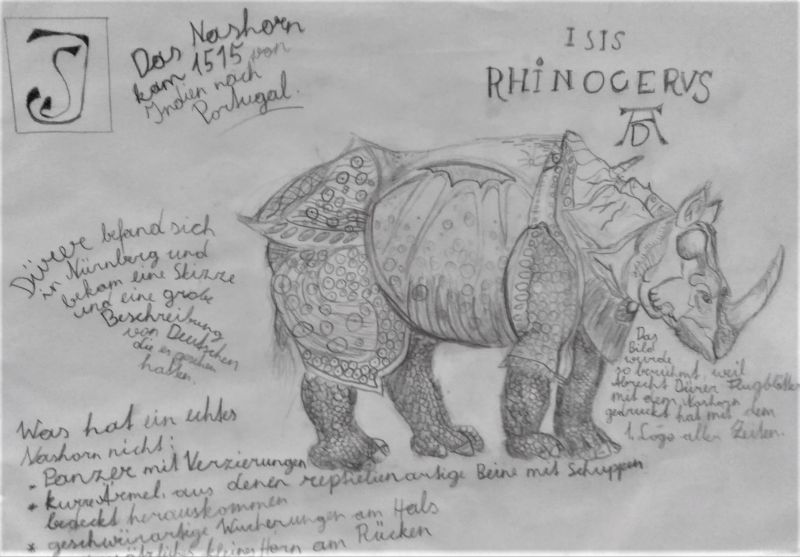 JS
Das Nashorn
kam 1515 von
Indien nach
Portugal.
ISIS
RHiNOCERVS
AD
Dürer befand sich
in Nürnberg und
bekam eine Skizze
und eine grobe
Beschreibung
von Deutschen
die es gesehen
hatten.
Das
Bild
wurde
so berühmt, weil
Albrecht Dürer Flugblätter
mit dem Nashorn
gedruckt hat mit dem
1. Logo aller Zeiten.
Was hat ein echtes
Nashorn nicht:
* Panzer mit Verzierungen
* kurze Ärmel, aus denen reptielienartige Beine mit Schuppen
bedeckt herauskommen
* geschwürartige Wucherungen am Hals
kleines Horn am Rücken